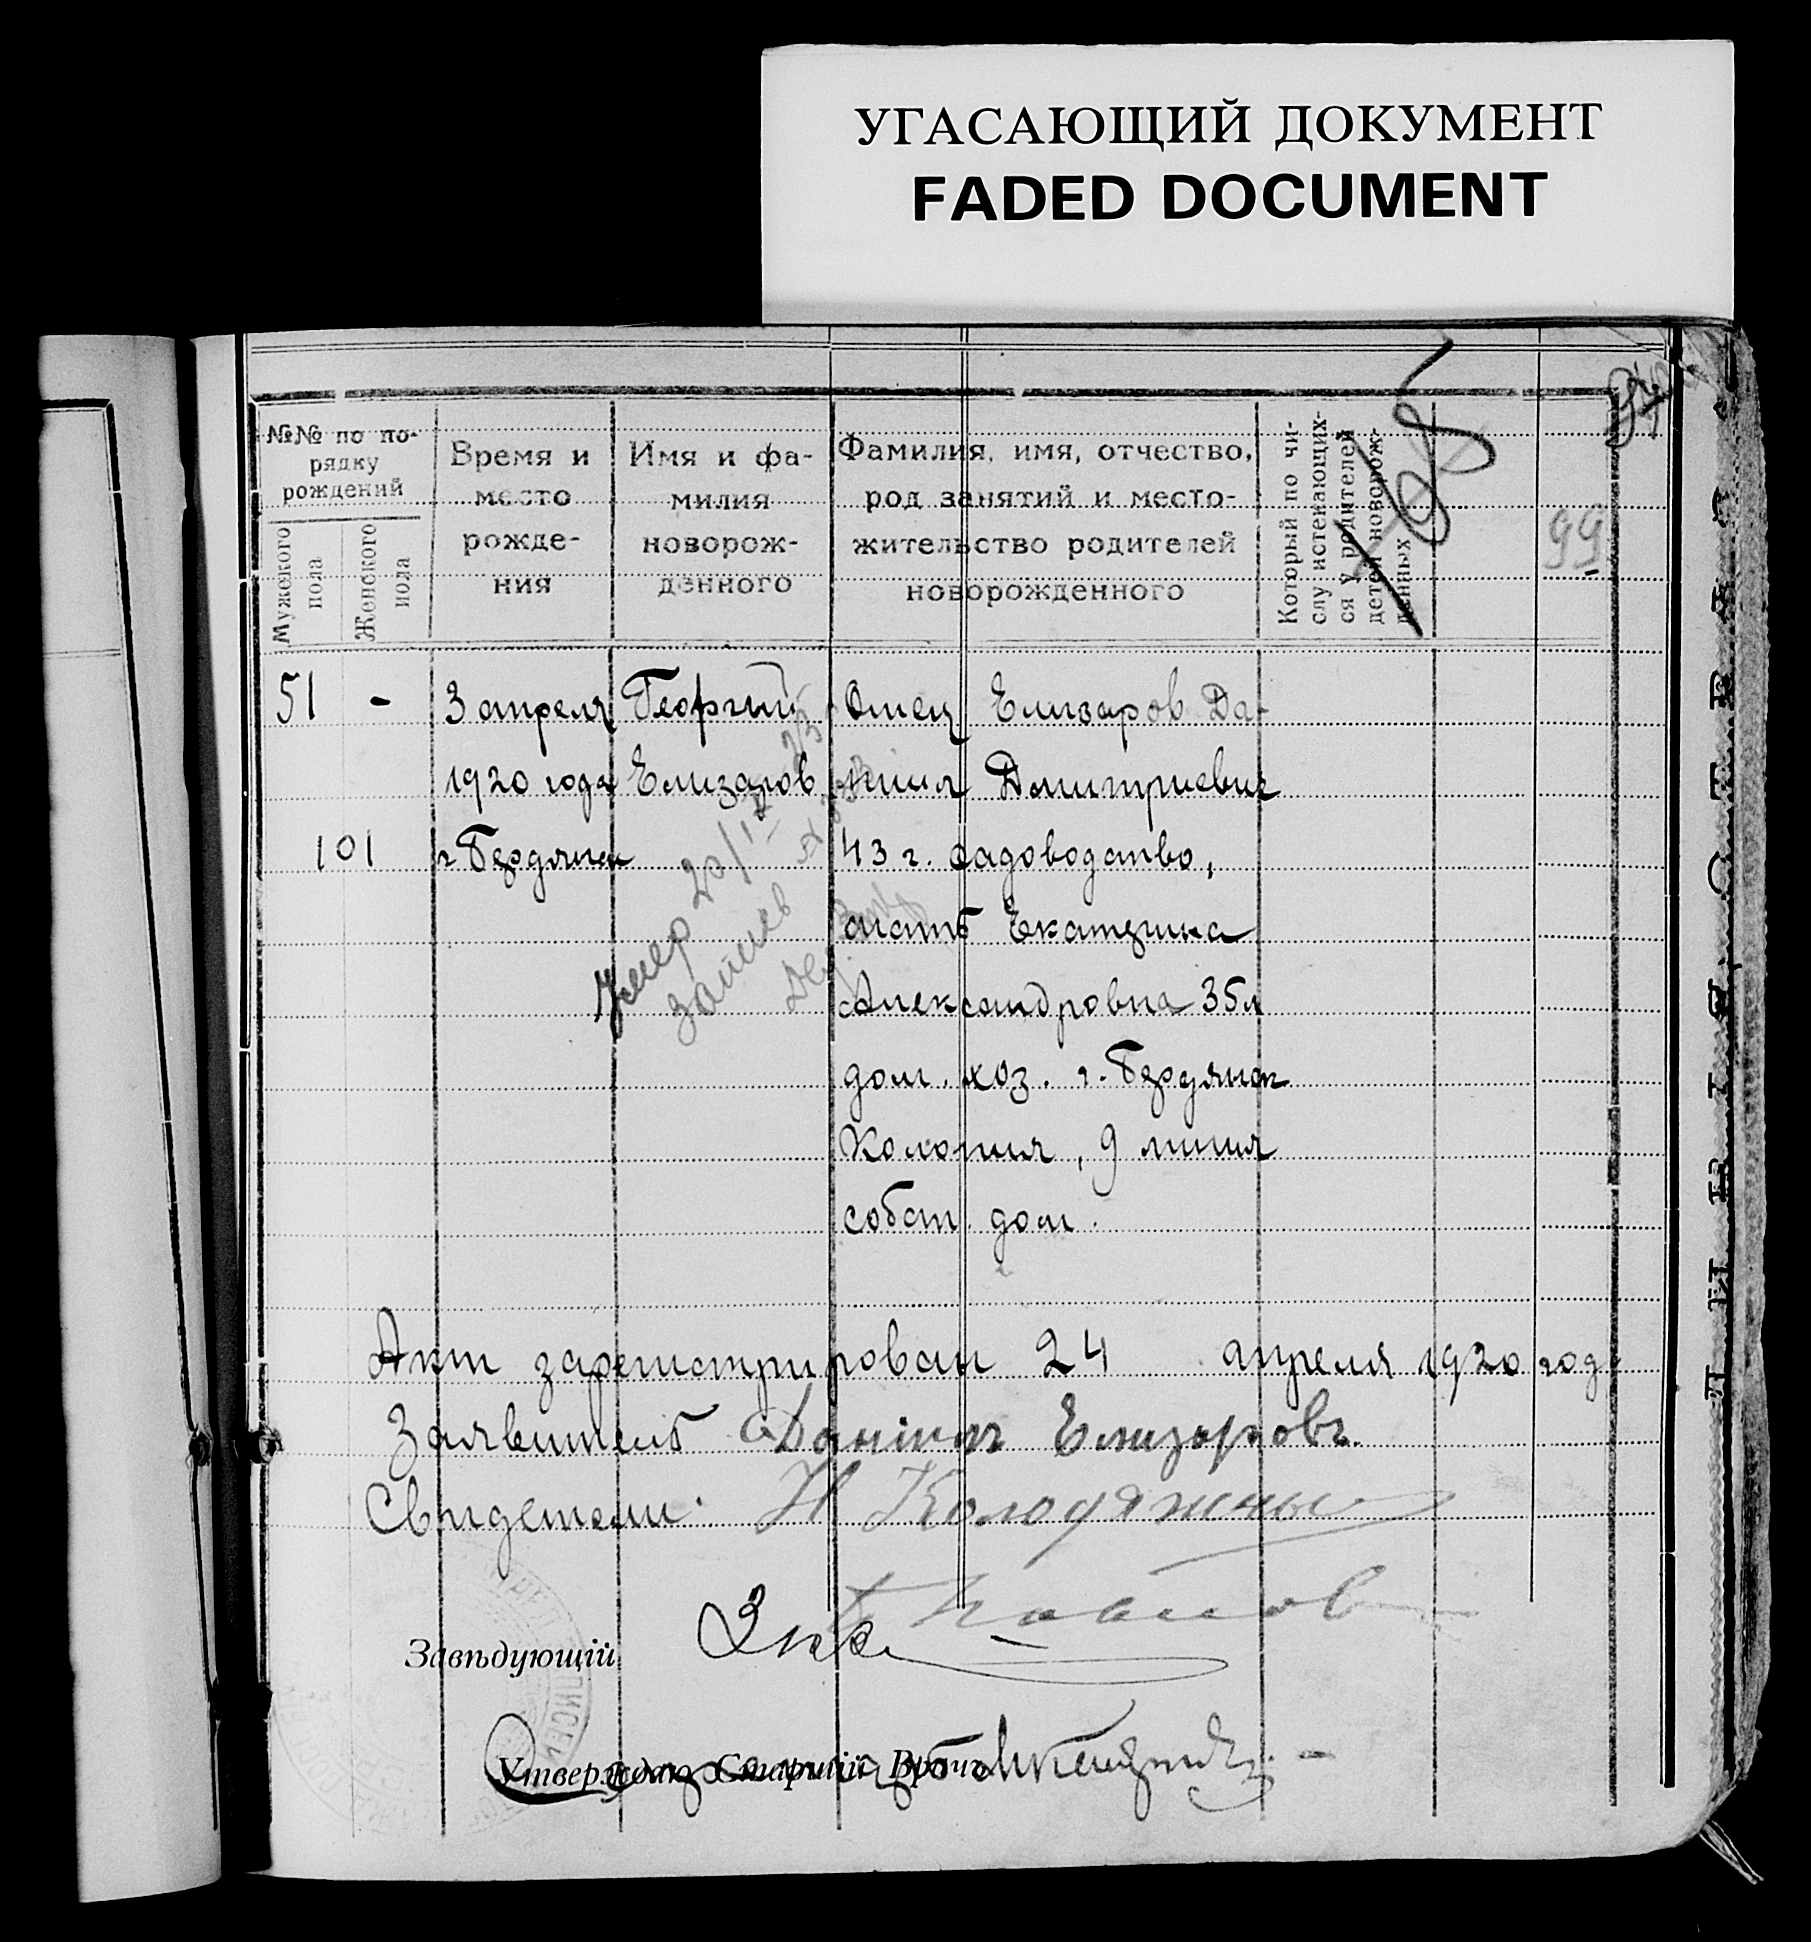 УГАСАЮЩИЙ ДОКУМЕНТ
FADED DOCUMENT
99
№№ по по-
рядку
рождений
Мужеского
пола
Женского
пола
Время и
место
рожде-
ния
Имя и фа-
милия
новорож-
денного
Фамилия, имя, отчество,
род занятий и место-
жительство родителей
новорожденного
Который по чи-
слу истекающих-
ся у родителей
детей новорож-
денных
51 - 3 апреля Георгий Отец Елизаров Да-
1920 года Елизаров ниил Дмитриевич
101 г. Бердянск 43 г. садоводство,
мать Екатерина
Александровна 35 л
дом. хоз. г. Бердянск
Колония, 9 линия
собст. дом.
Умер 20/IV
Акт зарегистрирован 24 апреля 1920 год
Заявитель Данiилъ Елизаровъ.
Свидетели: Н Колодяжны
Завѣдующій
Утверждаю Старшій Врачъ